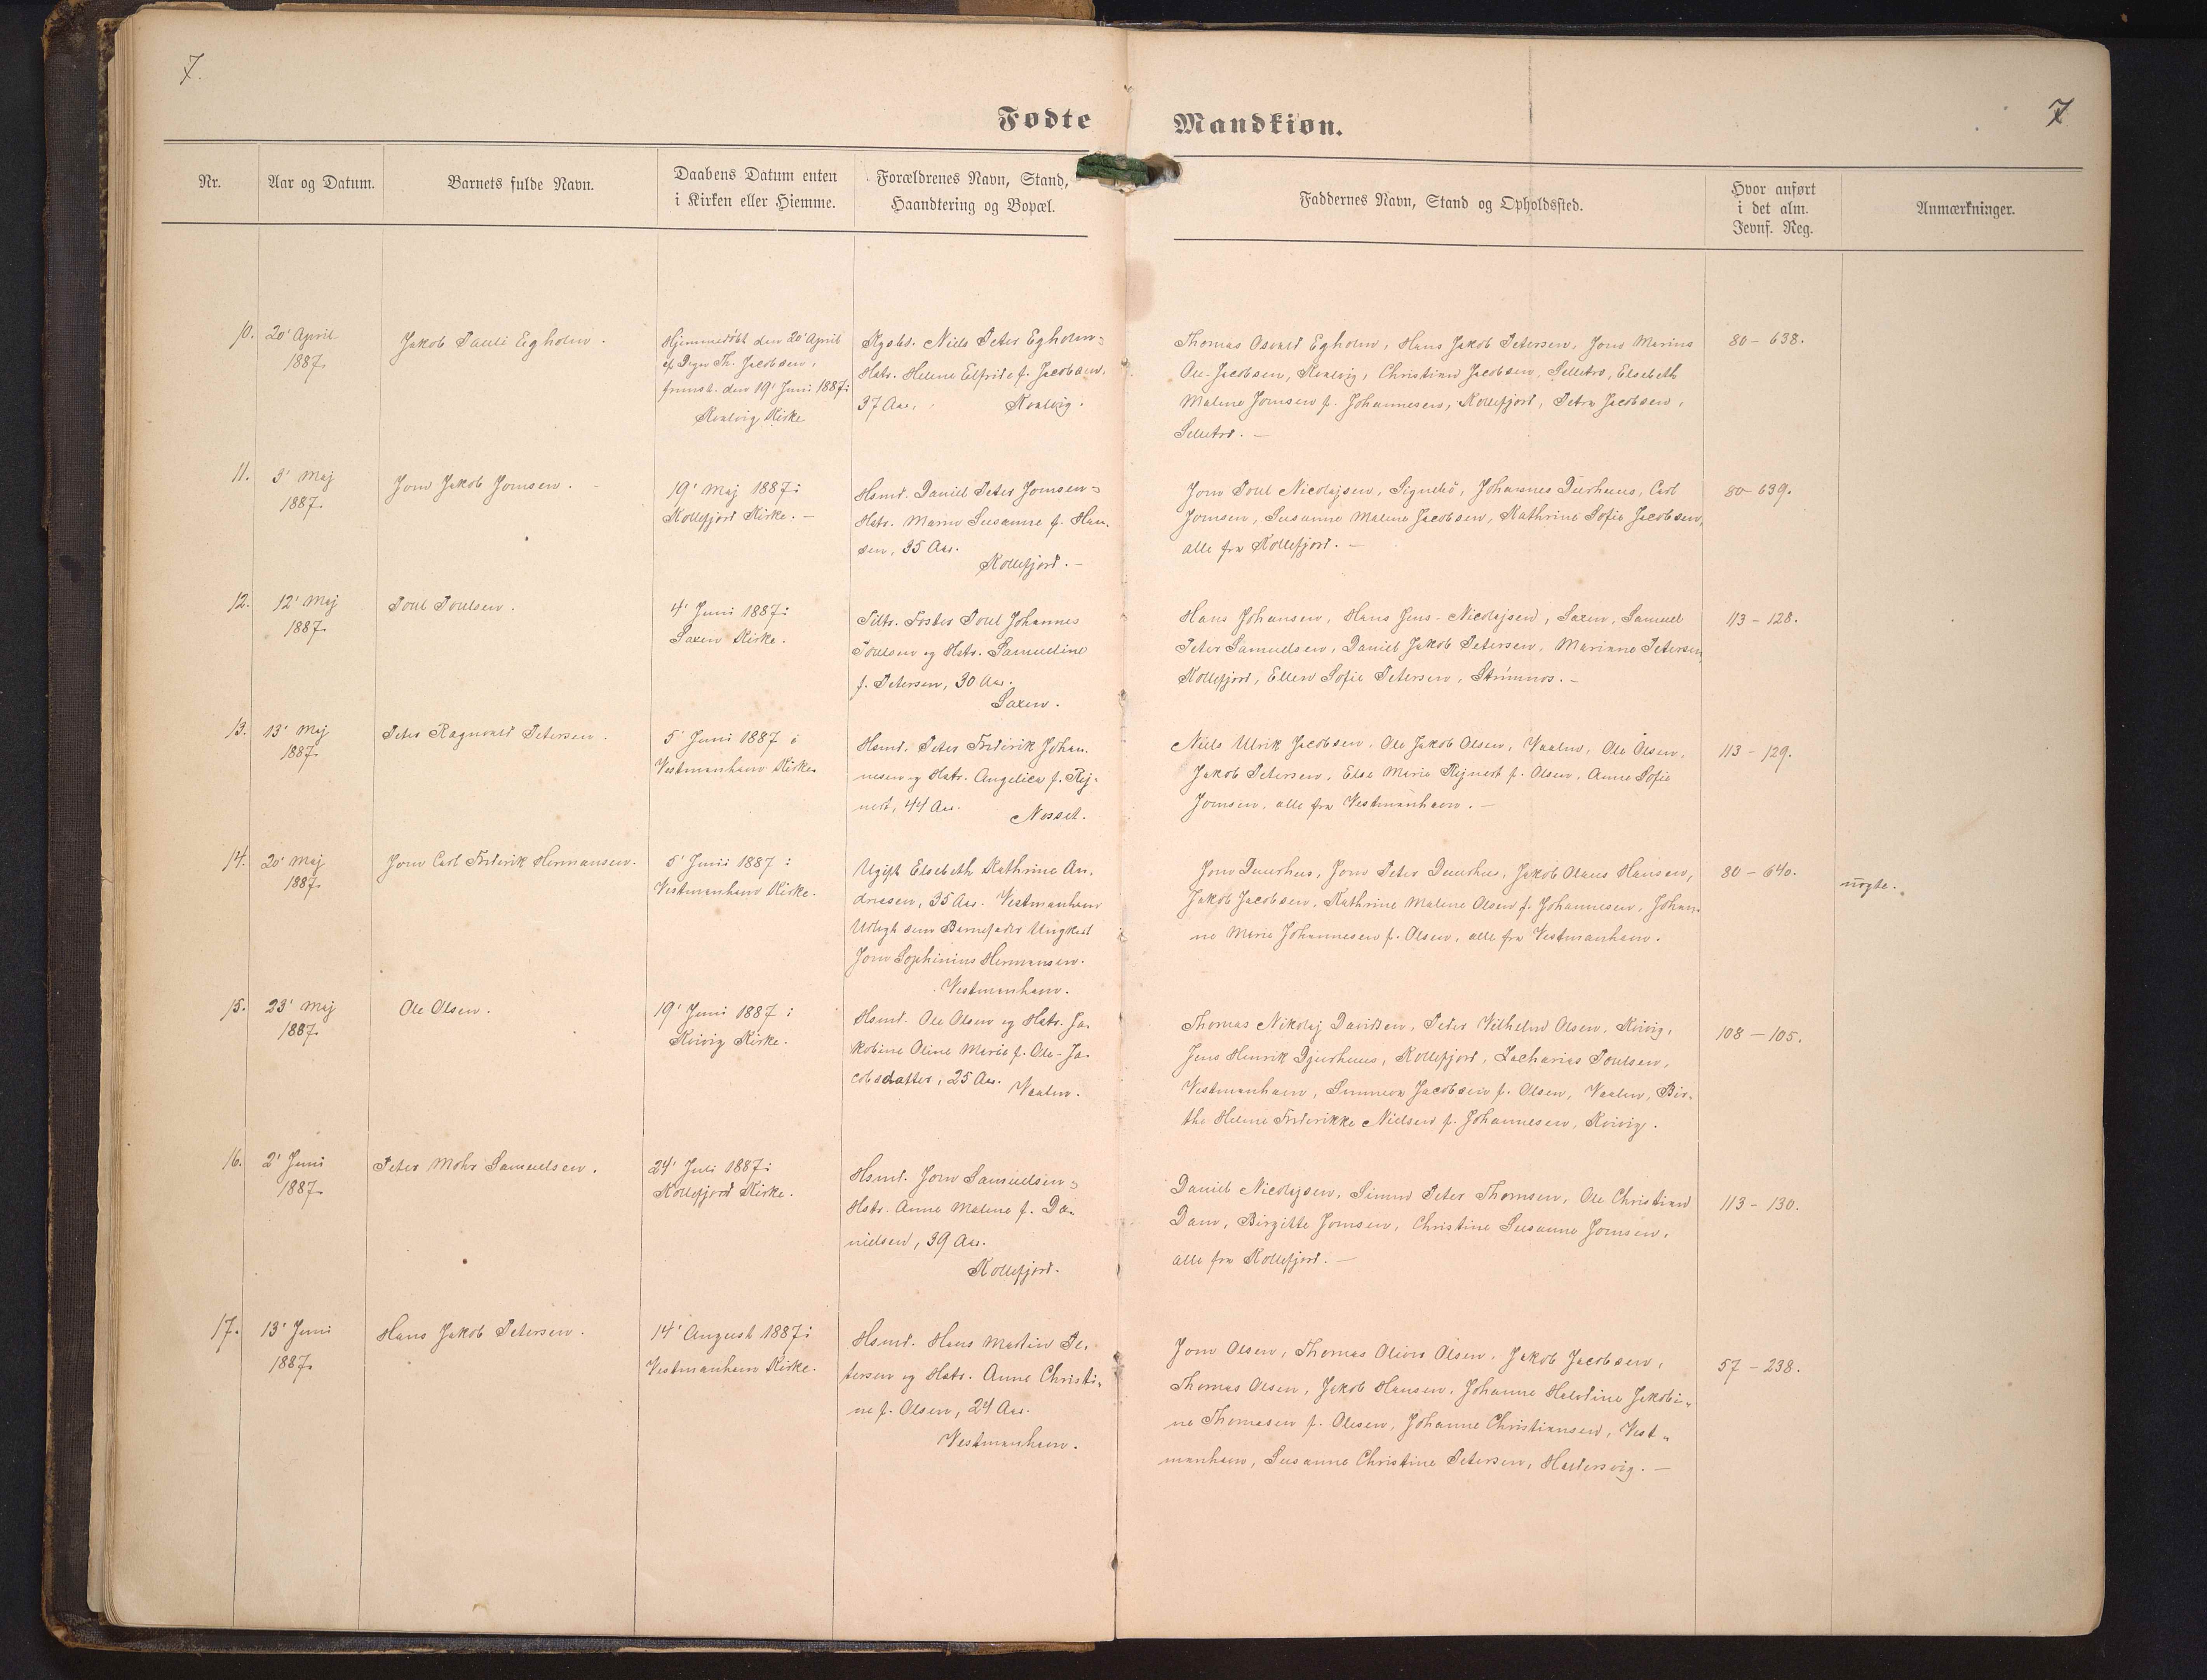 7.
7
Fødte Mandkiøn.
Nr.
Aar og Datum.
Barnets fulde Navn.
Daabens Datum enten
i Kirken eller Hiemme.
Forældrenes Navn, Stand,
Haandtering og Bopæl.
Faddernes Navn, Stand og Opholdssted.
Hvor anført
i det alm.
Jevnf. Reg.
Anmærkninger.
10.
20' April
1887.
Jakob Pauli Egholm.
Hjemmedøbt den 20' April
af Degn Th. Jacobsen,
fremst. den 19' Juni 1887 i
Kvalvig Kirke
Kgsbd. Niels Peter Egholm =
Hstr. Helene Elfride f. Jacobsen,
37 Aar. Kvalvig.
Thomas Osvald Egholm, Hans Jakob Petersen, Jens Marius
Ole-Jacobsen, Kvalvig, Christian Jacobsen, Selletræ, Elsebeth
Malene Joensen f. Johannesen, Kollefjord, Petra Jacobsen,
Selletræ. –
80 – 638.
11.
3' Maj
1887.
Joen Jakob Joensen. –
19' Maj 1887 i
Kollefjord Kirke. –
Hsmd. Daniel Peter Joensen =
Hstr. Maren Susanne f. Han-
sen, 35 Aar.
Kollefjord. –
Joen Poul Nicolajsen, Signebø, Johannes Diurhuus, Carl
Joensen, Susanne Malene Jacobsen, Kathrine Sofie Jacobsen,
alle fra Kollefjord. –
80 – 639.
12.
12' Maj
1887.
Poul Poulsen.
4' Juni 1887 i
Saxen Kirke.
Poul Johannes
Poulsen og Hstr. Samueline
f. Petersen, 30 Aar.
Saxen.
Hans Johansen, Hans Jens-Nicolajsen, Saxen, Samuel
Peter Samuelsen, Daniel Jakob Petersen, Marianne Petersen,
Kollefjord, Ellen Sofie Petersen, Strømnæs. –
113 – 128.
13.
13' Maj
1887.
Peter Ragnvald Petersen.
5' Juni 1887 i
Vestmanhavn Kirke.
Hsmd. Peter Frederik Johan-
nesen og Hstr. Angelica f. Rej-
nert, 44 Aar. Norset.
Niels Ulrik Jacobsen, Ole Jakob Olsen, Vaalen, Ole Olsen,
Jakob Petersen, Else Marie Rejnert f. Olsen, Anne Sofie
Joensen, alle fra Vestmanhavn. –
113 – 129.
14.
20' Maj
1887.
Joen Carl Frederik Hermansen.
5' Juni 1887 i
Vestmanhavn Kirke.
Ugift Elsebeth Kathrine An-
dreasen, 35 Aar. Vestmanhavn
Udlagt som Barnefader Ungkarl
Joen Sophinius Hermansen.
Vestmanhavn.
Joen Duurhus, Joen Peter Duurhus, Jakob Olaus Hansen,
Jakob Jacobsen, Kathrine Malene Olsen f. Johannesen, Johan-
ne Marie Johannesen f. Olsen, alle fra Vestmanhavn.
80 – 640.
uægte.
15.
23' Maj
1887.
Ole Olsen.
19' Juni 1887 i
Kvivig Kirke.
Hsmd. Ole Olsen og Hstr. Ja-
kobine Oline Marie f. Ole-Ja-
cobsdatter, 25 Aar. Vaalen.
Thomas Nikolaj Davidsen, Peter Vilhelm Olsen, Kvivig,
Jens Henrik Djurhuus, Kollefjord, Zacharias Poulsen,
Vestmanhavn, Sunneva Jacobsen f. Olsen, Vaalen, Bir-
the Helene Frederikke Nielsen f. Johannesen, Kvivig.
108 – 105.
16.
2' Juni
1887.
Peter Mohr Samuelsen.
24' Juli 1887 i
Kollefjord Kirke.
Hsmd. Joen Samuelsen =
Hstr. Anne Malene f. Da-
nielsen, 39 Aar.
Kollefjord.
Daniel Nicolajsen, Simon Peter Thomsen, Ole Christian
Dam, Birgitte Joensen, Christine Susanne Joensen,
alle fra Kollefjord. –
113 – 130.
17.
13' Juni
1887.
Hans Jakob Petersen.
14' August 1887 i
Vestmanhavn Kirke.
Hsmd. Hans Martin Pe-
tersen og Hstr. Anne Christi-
ne f. Olsen, 24 Aar.
Vestmanhavn.
Joen Olsen, Thomas Olsen, Jakob Jacobsen,
Thomas Olsen, Jakob Hansen, Johanne Halvdine Jakobi-
ne Thomasen f. Olesen, Johanne Christiansen, Vest-
manhavn, Susanne Christine Petersen, Haldersvig. –
57 – 238.